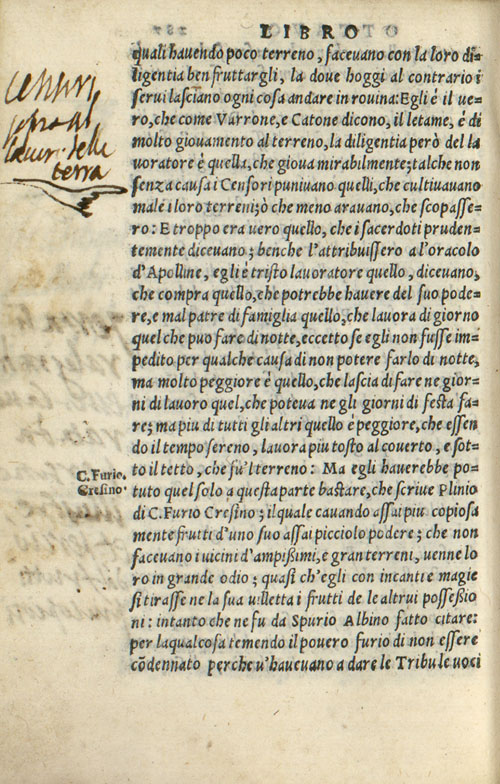 LIBRO
quali havendo poco terreno, facevano con la loro di⸗
ligentia ben fruttargli, la dove hoggi al contrario i
servi lasciano ogni cosa andare in rovina: Egli é il ve⸗
ro, che come Varrone, e Catone dicono, il letame, é di
molto giovamento al terreno, la diligentia però del la
voratore é quella, che giova mirabilmente; talche non
senza causa i Censori punivano quelli, che cultivavano
male i loro terreni; ò che meno aravano, che scopasse⸗
ro: E troppo era vero quello, che i sacerdoti pruden⸗
temente dicevano; benche l'attribuissero a l'oracolo
d'Apolline, egli é tristo lavoratore quello, dicevano,
che compra quello, che potrebbe havere del suo pode⸗
re, e mal patre di famiglia quello, che lavora di giorno
quel che puo fare di notte, eccetto se egli non fusse im⸗
pedito per qualche causa di non potere farlo di notte,
ma molto peggiore é quello, che lascia di fare ne gior⸗
ni di lavoro quel, che poteva ne gli giorni di festa fa⸗
re; ma piu di tutti gli altri quello é peggiore, che essen
do il tempo sereno, lavora piu tosto al coverto, e sot⸗
to il tetto, che sù'l terreno: Ma egli haverebbe po⸗
C. Furio
Cresino.
tuto quel solo a questa parte bastare, che scrive Plinio
di C. Furio Cresino; il quale cavando assai piu copiosa
mente frutti d'uno suo assai picciolo podere; che non
facevano i vicini d'ampissimi, e gran terreni, venne lo
ro in grande odio; quasi ch'egli con incanti e magie
si tirasse ne la sua villetta i frutti de le altrui possessio
ni: intanto che ne fu da Spurio Albino fatto citare:
per laqualcosa temendo il povero furio di non essere
cõdennato perche v'havevano a dare le Tribu le voci
terra